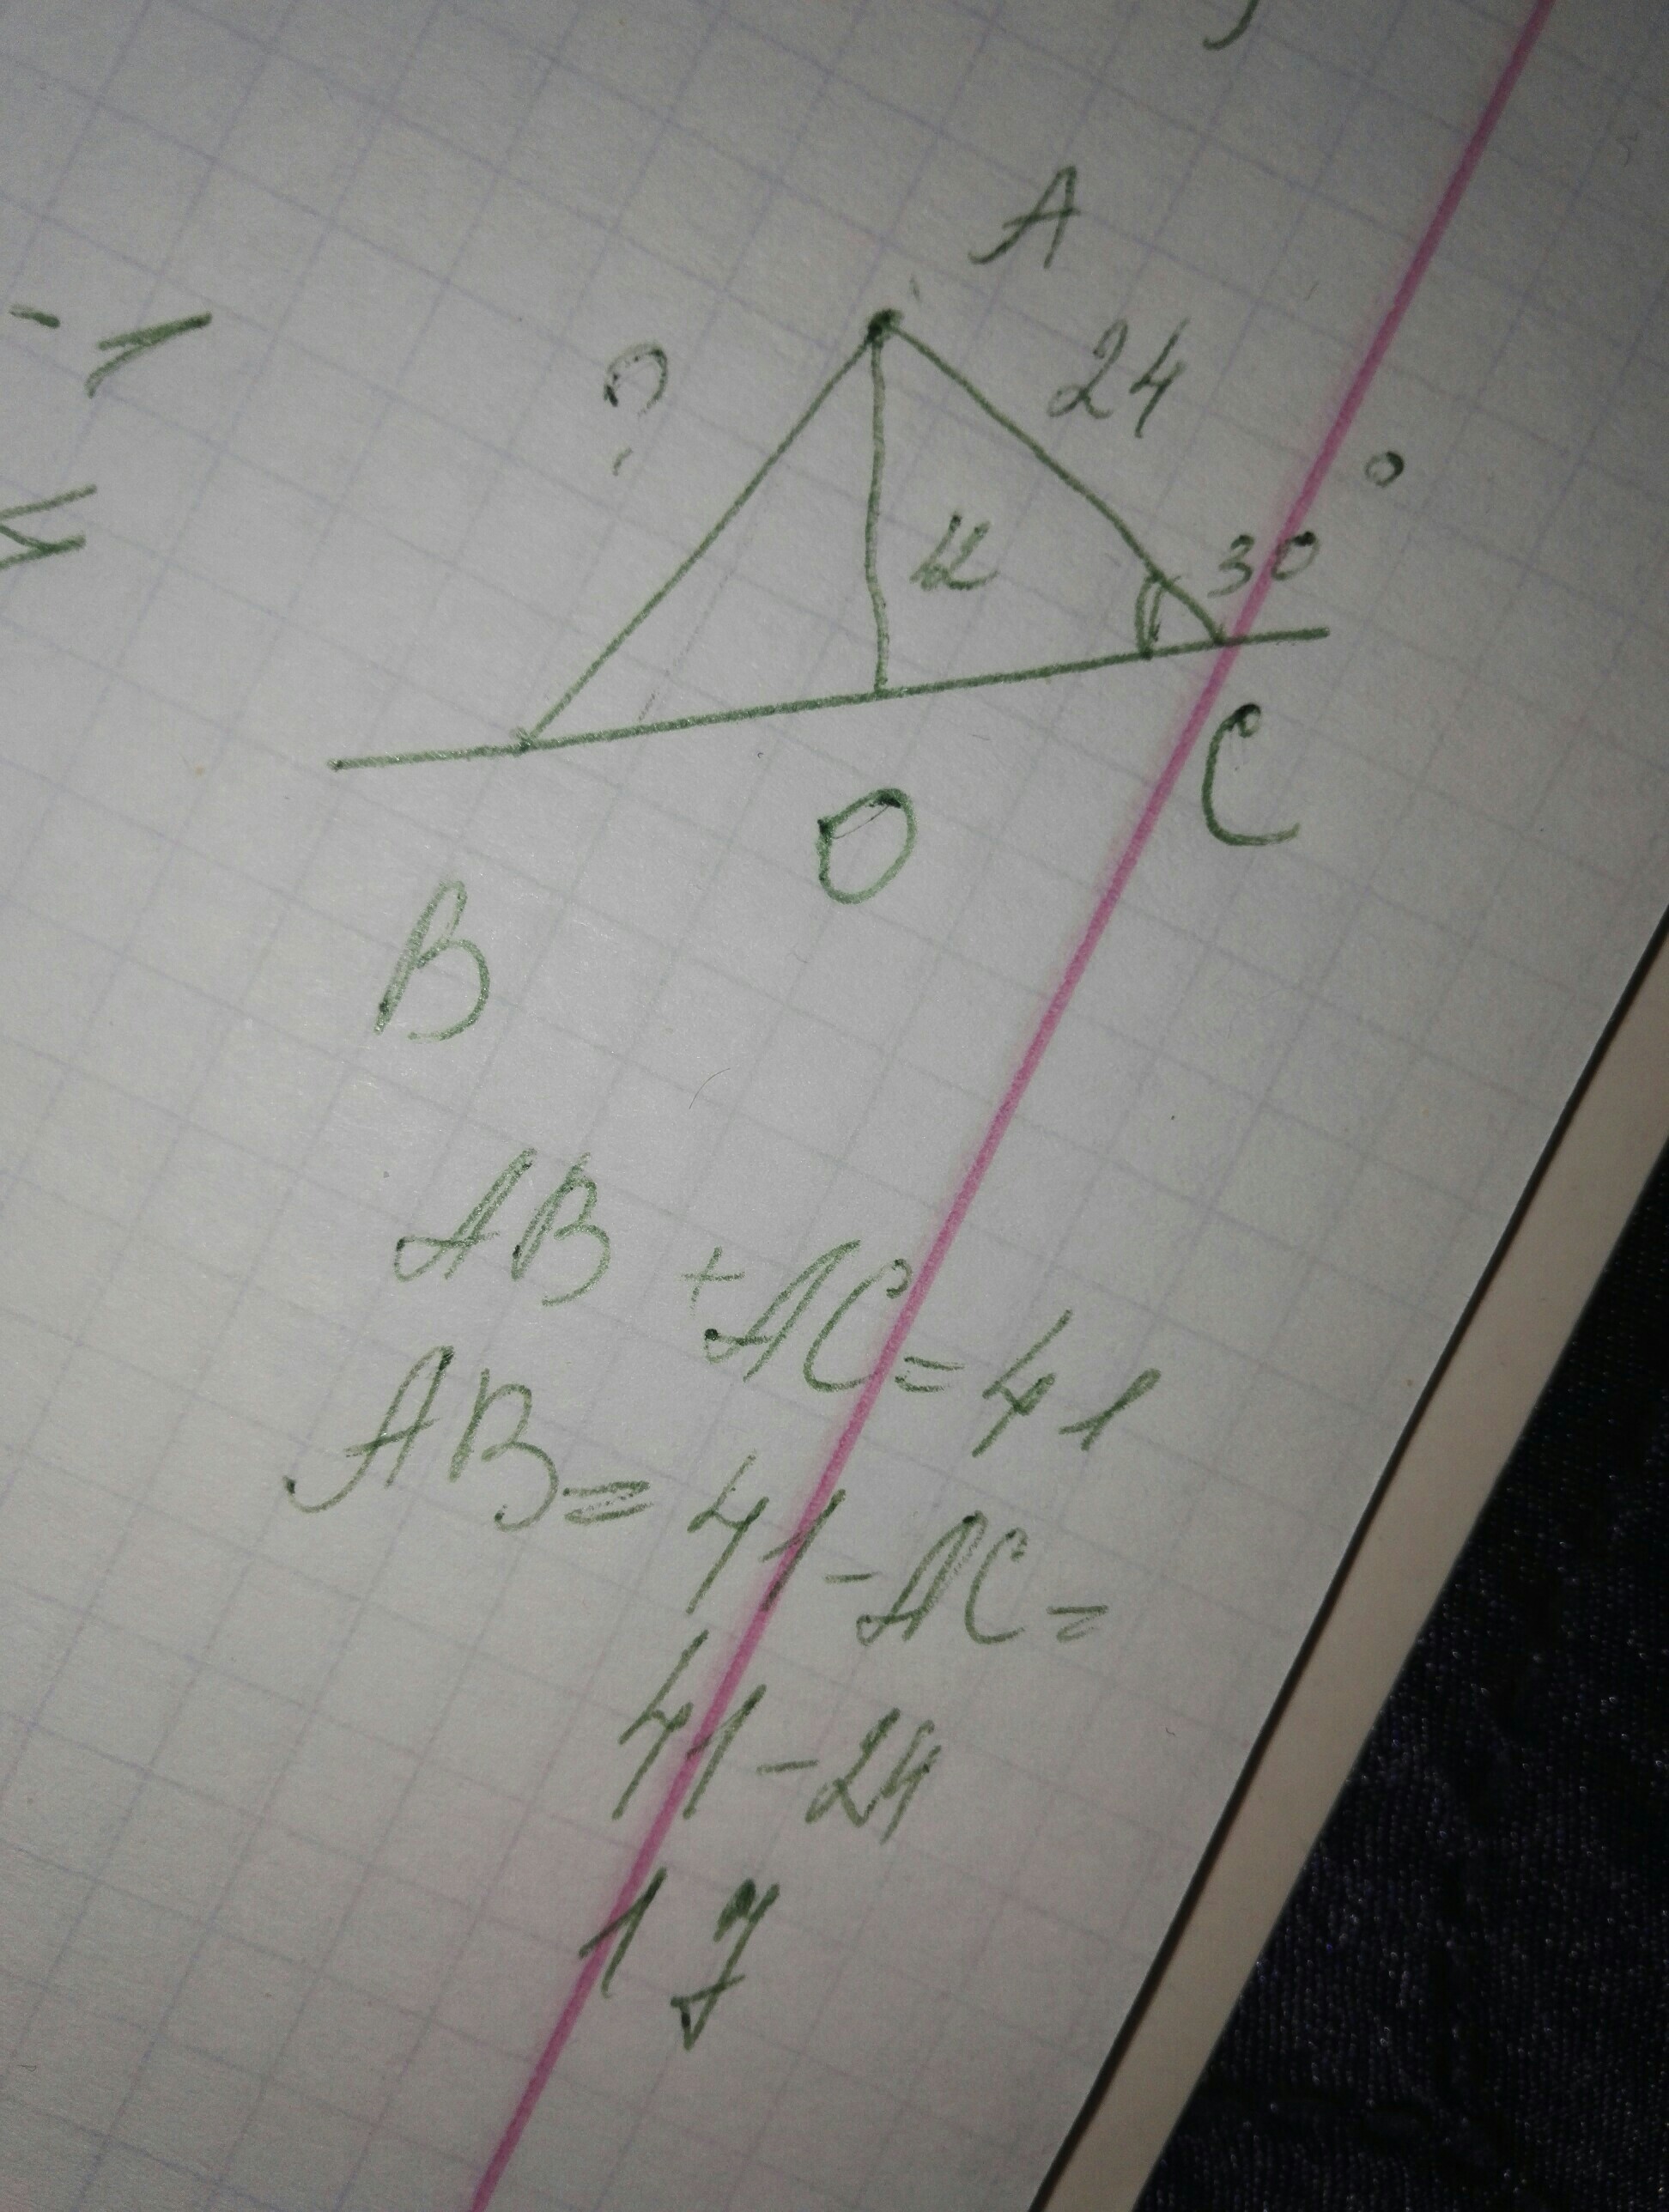 - 1
A
24
?
30°
12
C
O
B
AB + AC = 41
AB = 41 - AC =
41 - 24
17